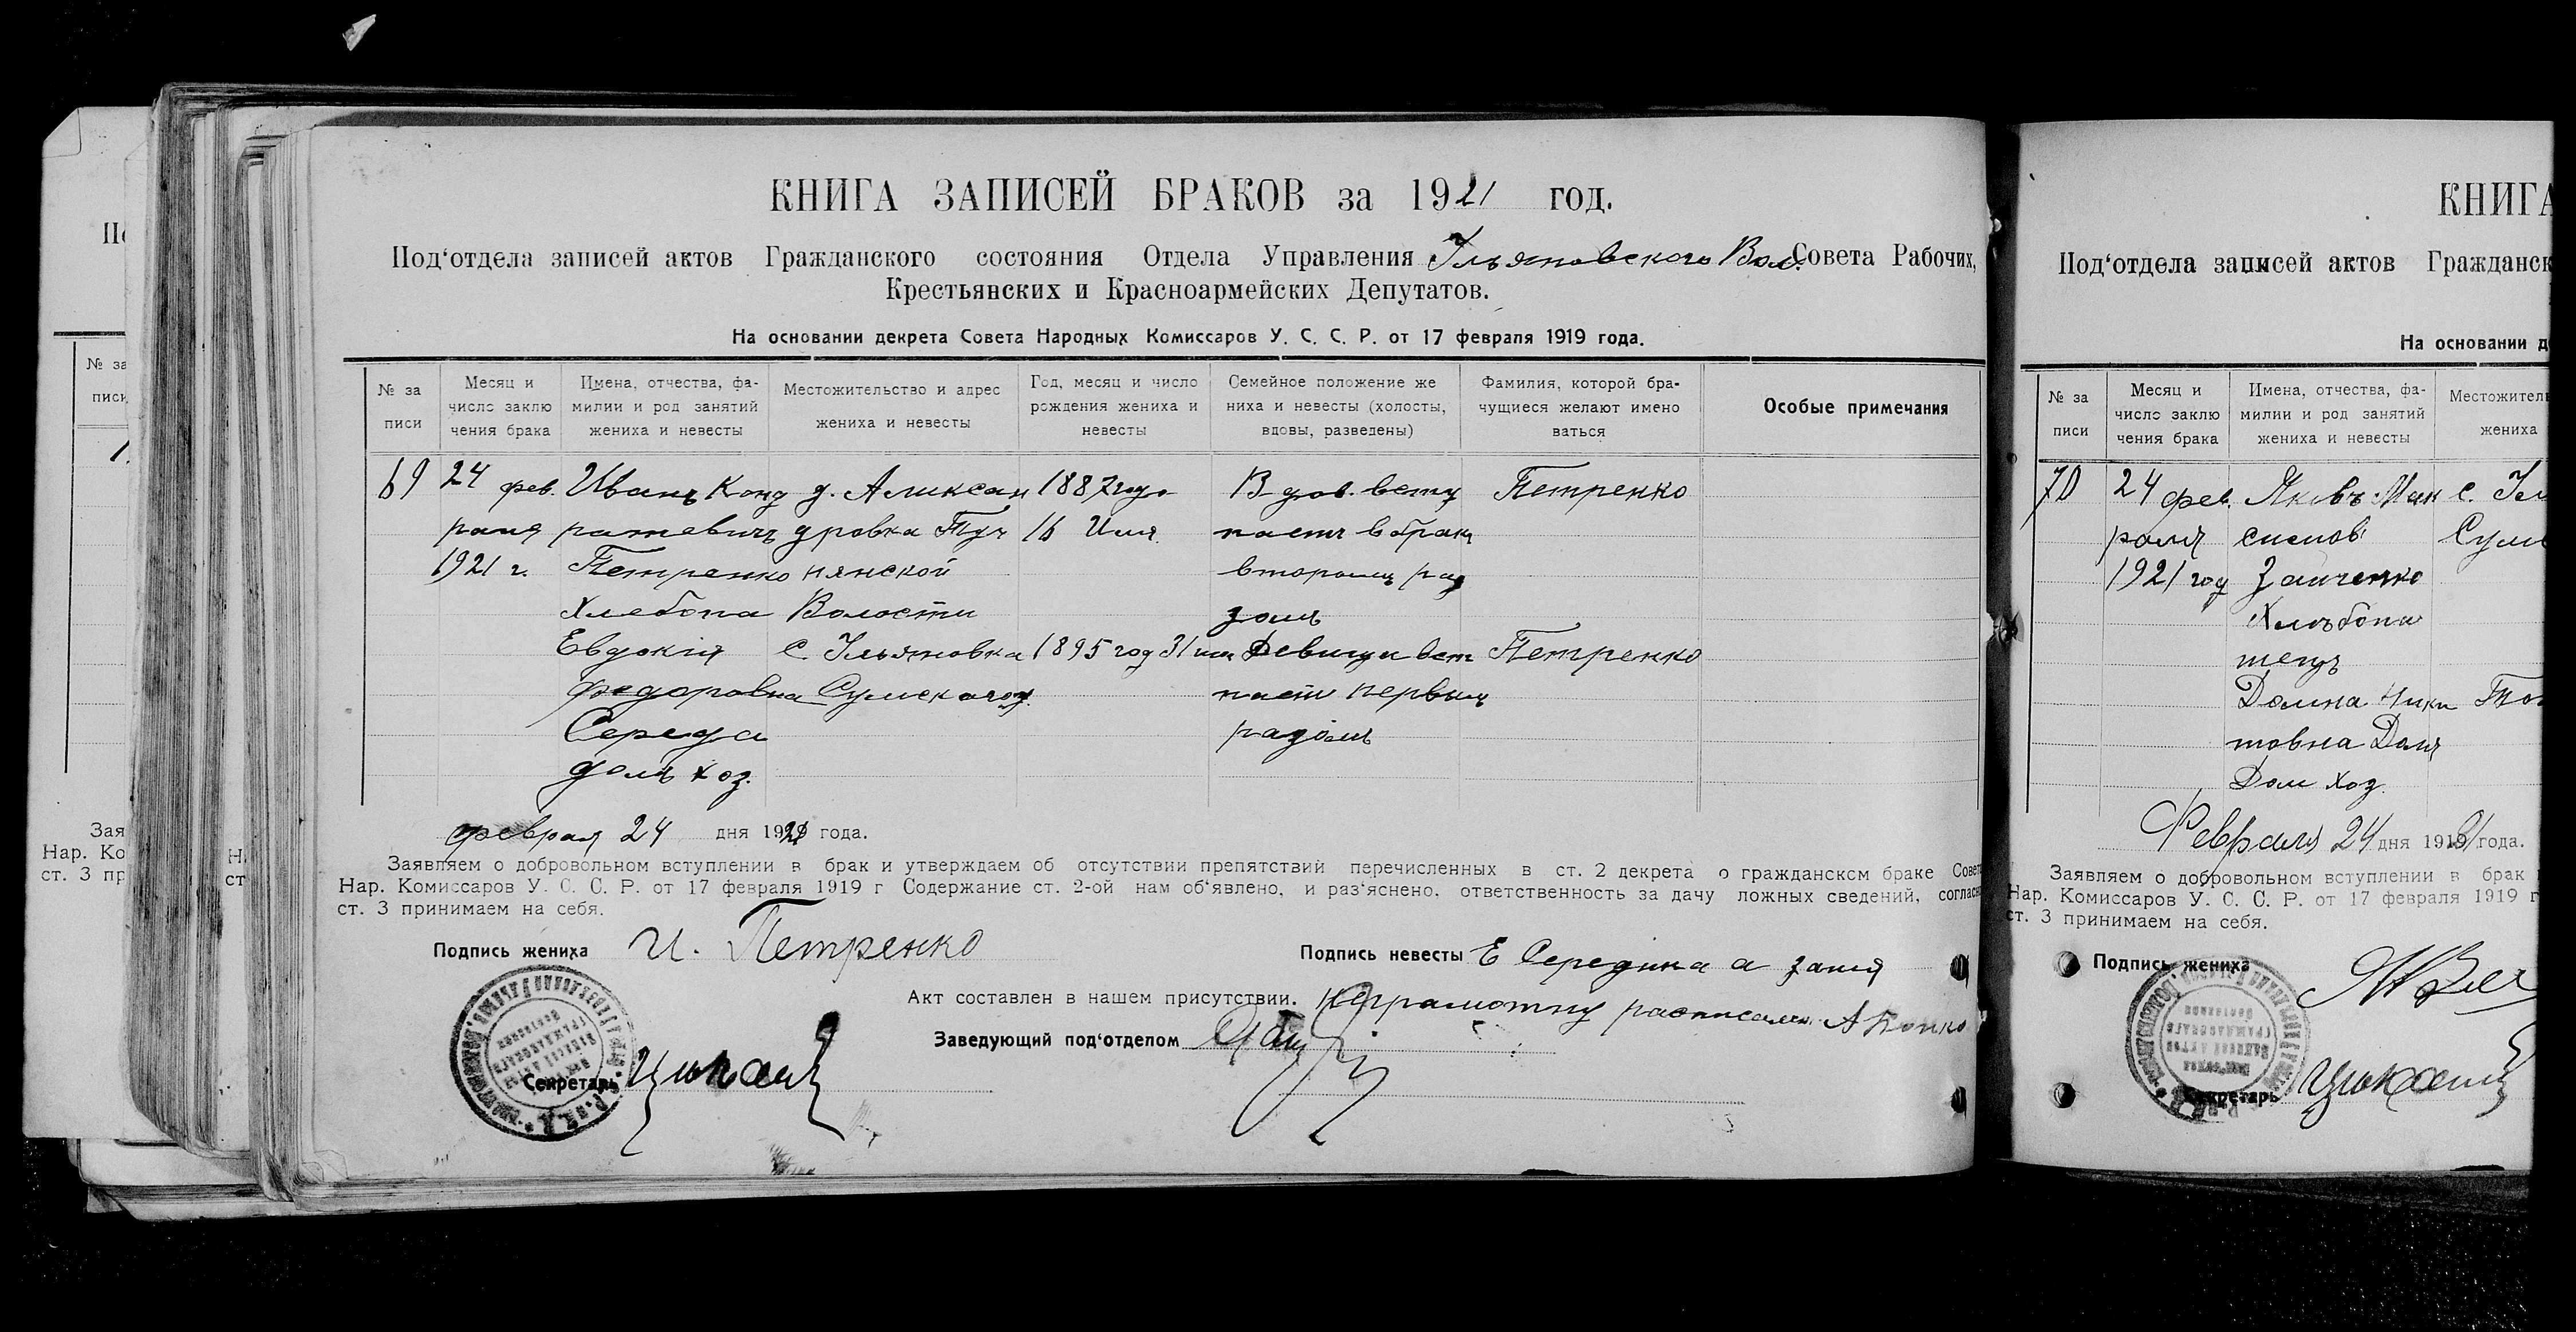 КНИГА ЗАПИСЕЙ БРАКОВ за 1921 год.
Под'отдела записей актов Гражданского состояния Отдела Управления Ульяновского Вол. Совета Рабочих,
Крестьянских и Красноармейских Депутатов.
На основании декрета Совета Народных Комиссаров У. С. С. Р. от 17 февраля 1919 года.
№ за
писи
Месяц и
число заклю
чения брака
Имена, отчества, фа-
милии и род занятий
жениха и невесты
Местожительство и адрес
жениха и невесты
Год, месяц и число
рождения жениха и
невесты
Семейное положение же
ниха и невесты (холосты,
вдовы, разведены)
Фамилия, которой бра-
чущиеся желают имено
ваться
Особые примечания
69
24 фев.
раля
1921 г.
Иванъ Конд
ратевичъ
Петренко
Хлебопа
д. Аликсан
дровка Туч
нянской
Волости
1887 года
16 Июля
Вдов. вступ
паетъ в бракъ
вторымъ ра
зомъ
Петренко
Евдокія
Федоровна
Середа
домъ хоз.
с. Ульяновка
Сумского у.
1895 год 31
Девица вст
паетъ первымъ
разомъ
Петренко
февраля 24 дня 1921 года.
Заявляем о добровольном вступлении в брак и утверждаем об отсутствии препятствий перечисленных в ст. 2 декрета о гражданском браке Совета
Нар. Комиссаров У. С. С. Р. от 17 февраля 1919 г Содержание ст. 2-ой нам об'явлено, и раз'яснено, ответственность за дачу ложных сведений, согласно
ст. 3 принимаем на себя.
Подпись жениха И. Петренко
Подпись невесты Е Середина а за нея
неграмотну расписался А
Акт составлен в нашем присутствии.
Заведующий под'отделом
Секретарь
КНИГА
Под'отдела записей актов Гражданск
На основании д
№ за
писи
Месяц и
число заклю
чения брака
Имена, отчества, фа-
милии и род занятий
жениха и невесты
Местожитель
жениха
70
24 фев.
раля
1921 год
Яковъ Мак
симов
Заиченко
Хлѣбопа
шецъ
Домна Ники
товна
Дом хоз.
с. Ул
Сумс
Февраля 24 дня 1921 года.
Заявляем о добровольном вступлении в брак
Нар. Комиссаров У. С. С. Р. от 17 февраля 1919 г
ст. 3 принимаем на себя.
Подпись жениха
Секретарь
№ за
писи
Зая
Нар. Ко
ст. 3 пр